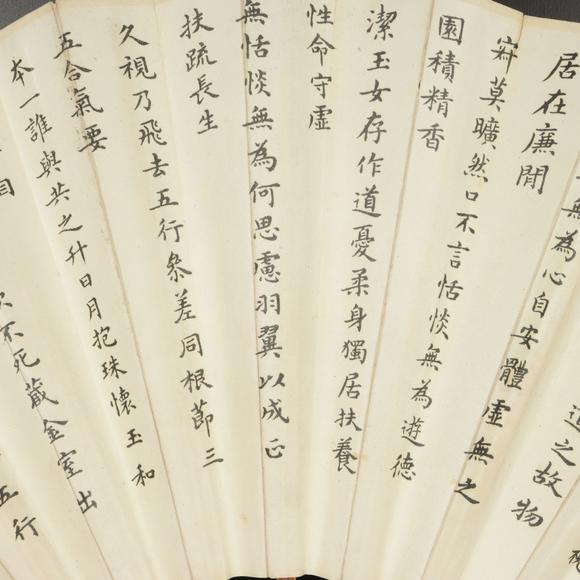 之故物
無為心自安體虛無之
居在廉閒
莫曠然口不言恬惔無為遊德
園積精香
潔玉女存作道憂柔身獨居扶養
性命守虛
無恬惔無為何思慮羽翼以成正
扶疏長生
久視乃飛去五行叅差同根節三
五合氣要
本一誰與共之升日月抱珠懷玉和
不死藏金室出
五行